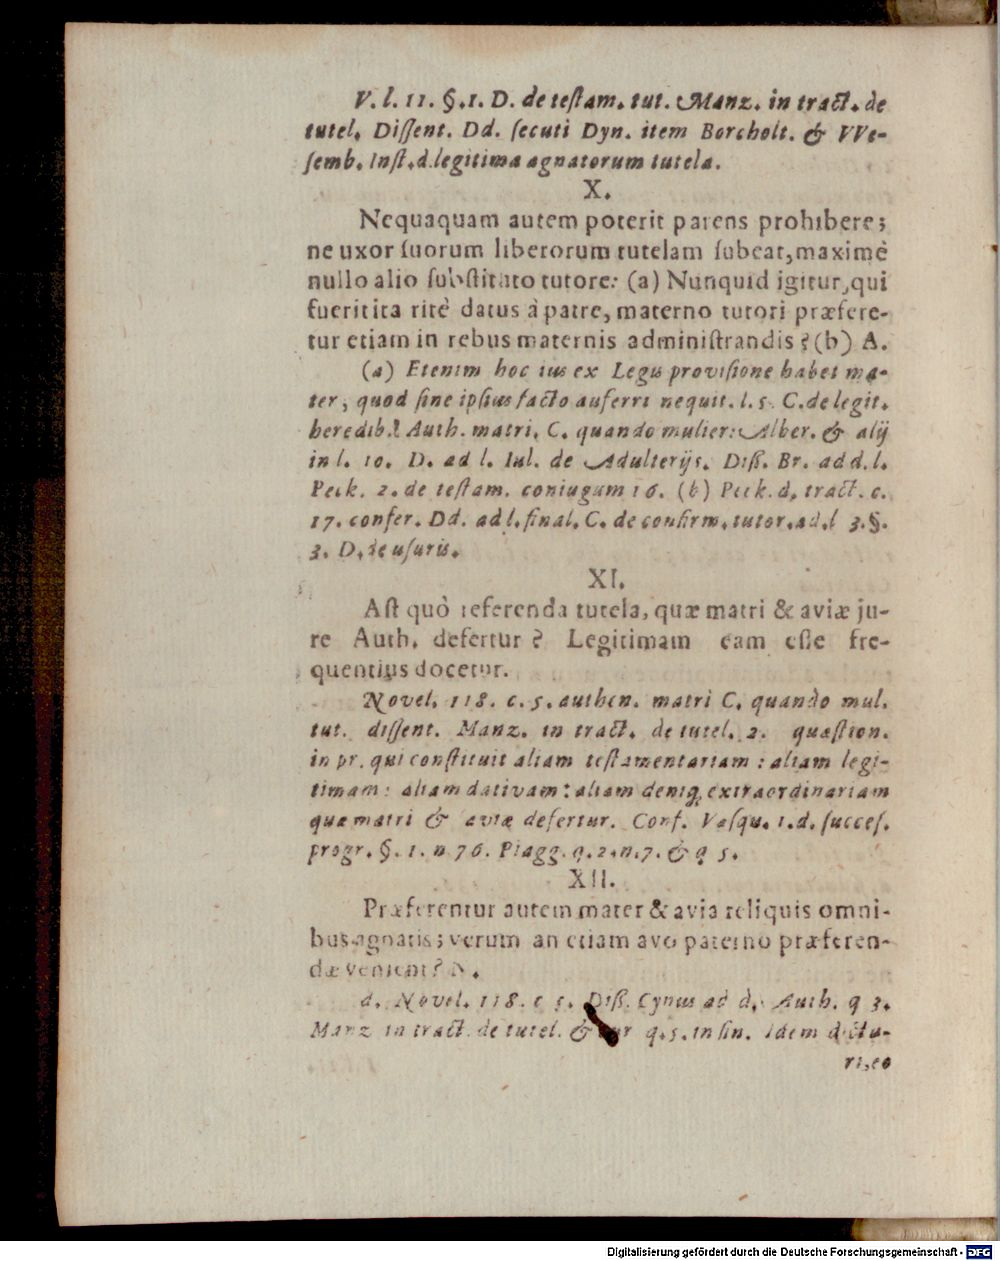 V. l. 11. §. 1. D. de teſtam. tut. Manz. in tract. de
tutel. Diſſent. Dd. ſecuti Dyn. item Borcholt. & VVe-
ſemb. Inſt. d. legitima agnatorum tutela.
X.
Nequaquam autem poterit parens prohibere;
ne uxor ſuorum liberorum tutelam ſubeat, maximè
nullo alio ſubſtituto tutore: (a) Nunquid igitur, qui
fuerit ita ritè datus à patre, materno tutori præfere-
tur etiam in rebus maternis adminiſtrandis? (b) A.
(a) Etenim hoc ius ex Legis proviſione habet ma-
ter, quod ſine ipſius facto auferri nequit. l. 5. C. de legit.
heredib. l. Auth. matri. C. quando mulier: Alber. & alij
in l. 10. D. ad l. Iul. de Adulterijs. Diſſ. Br. ad d. l.
Peck. 2. de teſtam. coniugum 16. (b) Peck. d. tract. c.
17. confer. Dd. ad l. final. C. de confirm. tutor. ad. l 3. §.
3. D. de uſuris.
XI.
Aſt quò referenda tutela, quæ matri & aviæ ju-
re Auth. defertur? Legitimam eam eſſe fre-
quentius docetur.
Novel. 118. c. 5. authen. matri C. quando mul.
tut. diſſent. Manz. in tract. de tutel. 2. quæſtion.
in pr. qui conſtituit aliam teſtamentariam: aliam legi-
timam: aliam dativam: aliam deniq; extraordinariam
quæ matri & aviæ defertur. Conf. Vaſqu. 1. d. ſucceſ.
progr. §. 1. n 76. Piagg. q. 2. n. 7. & q 5.
XII.
Præferentur autem mater & avia reliquis omni-
bus agnatis; verum an etiam avo paterno præferen-
dæ venient? N.
d. Novel. 118. c 5. Diſſ. Cynus ad d. Auth. q 3.
Manz in tract. de tutel. & q. 5. in fin. Idem dictu-
ri, eo
Digitalisierung gefördert durch die Deutsche Forschungsgemeinschaft - DFG